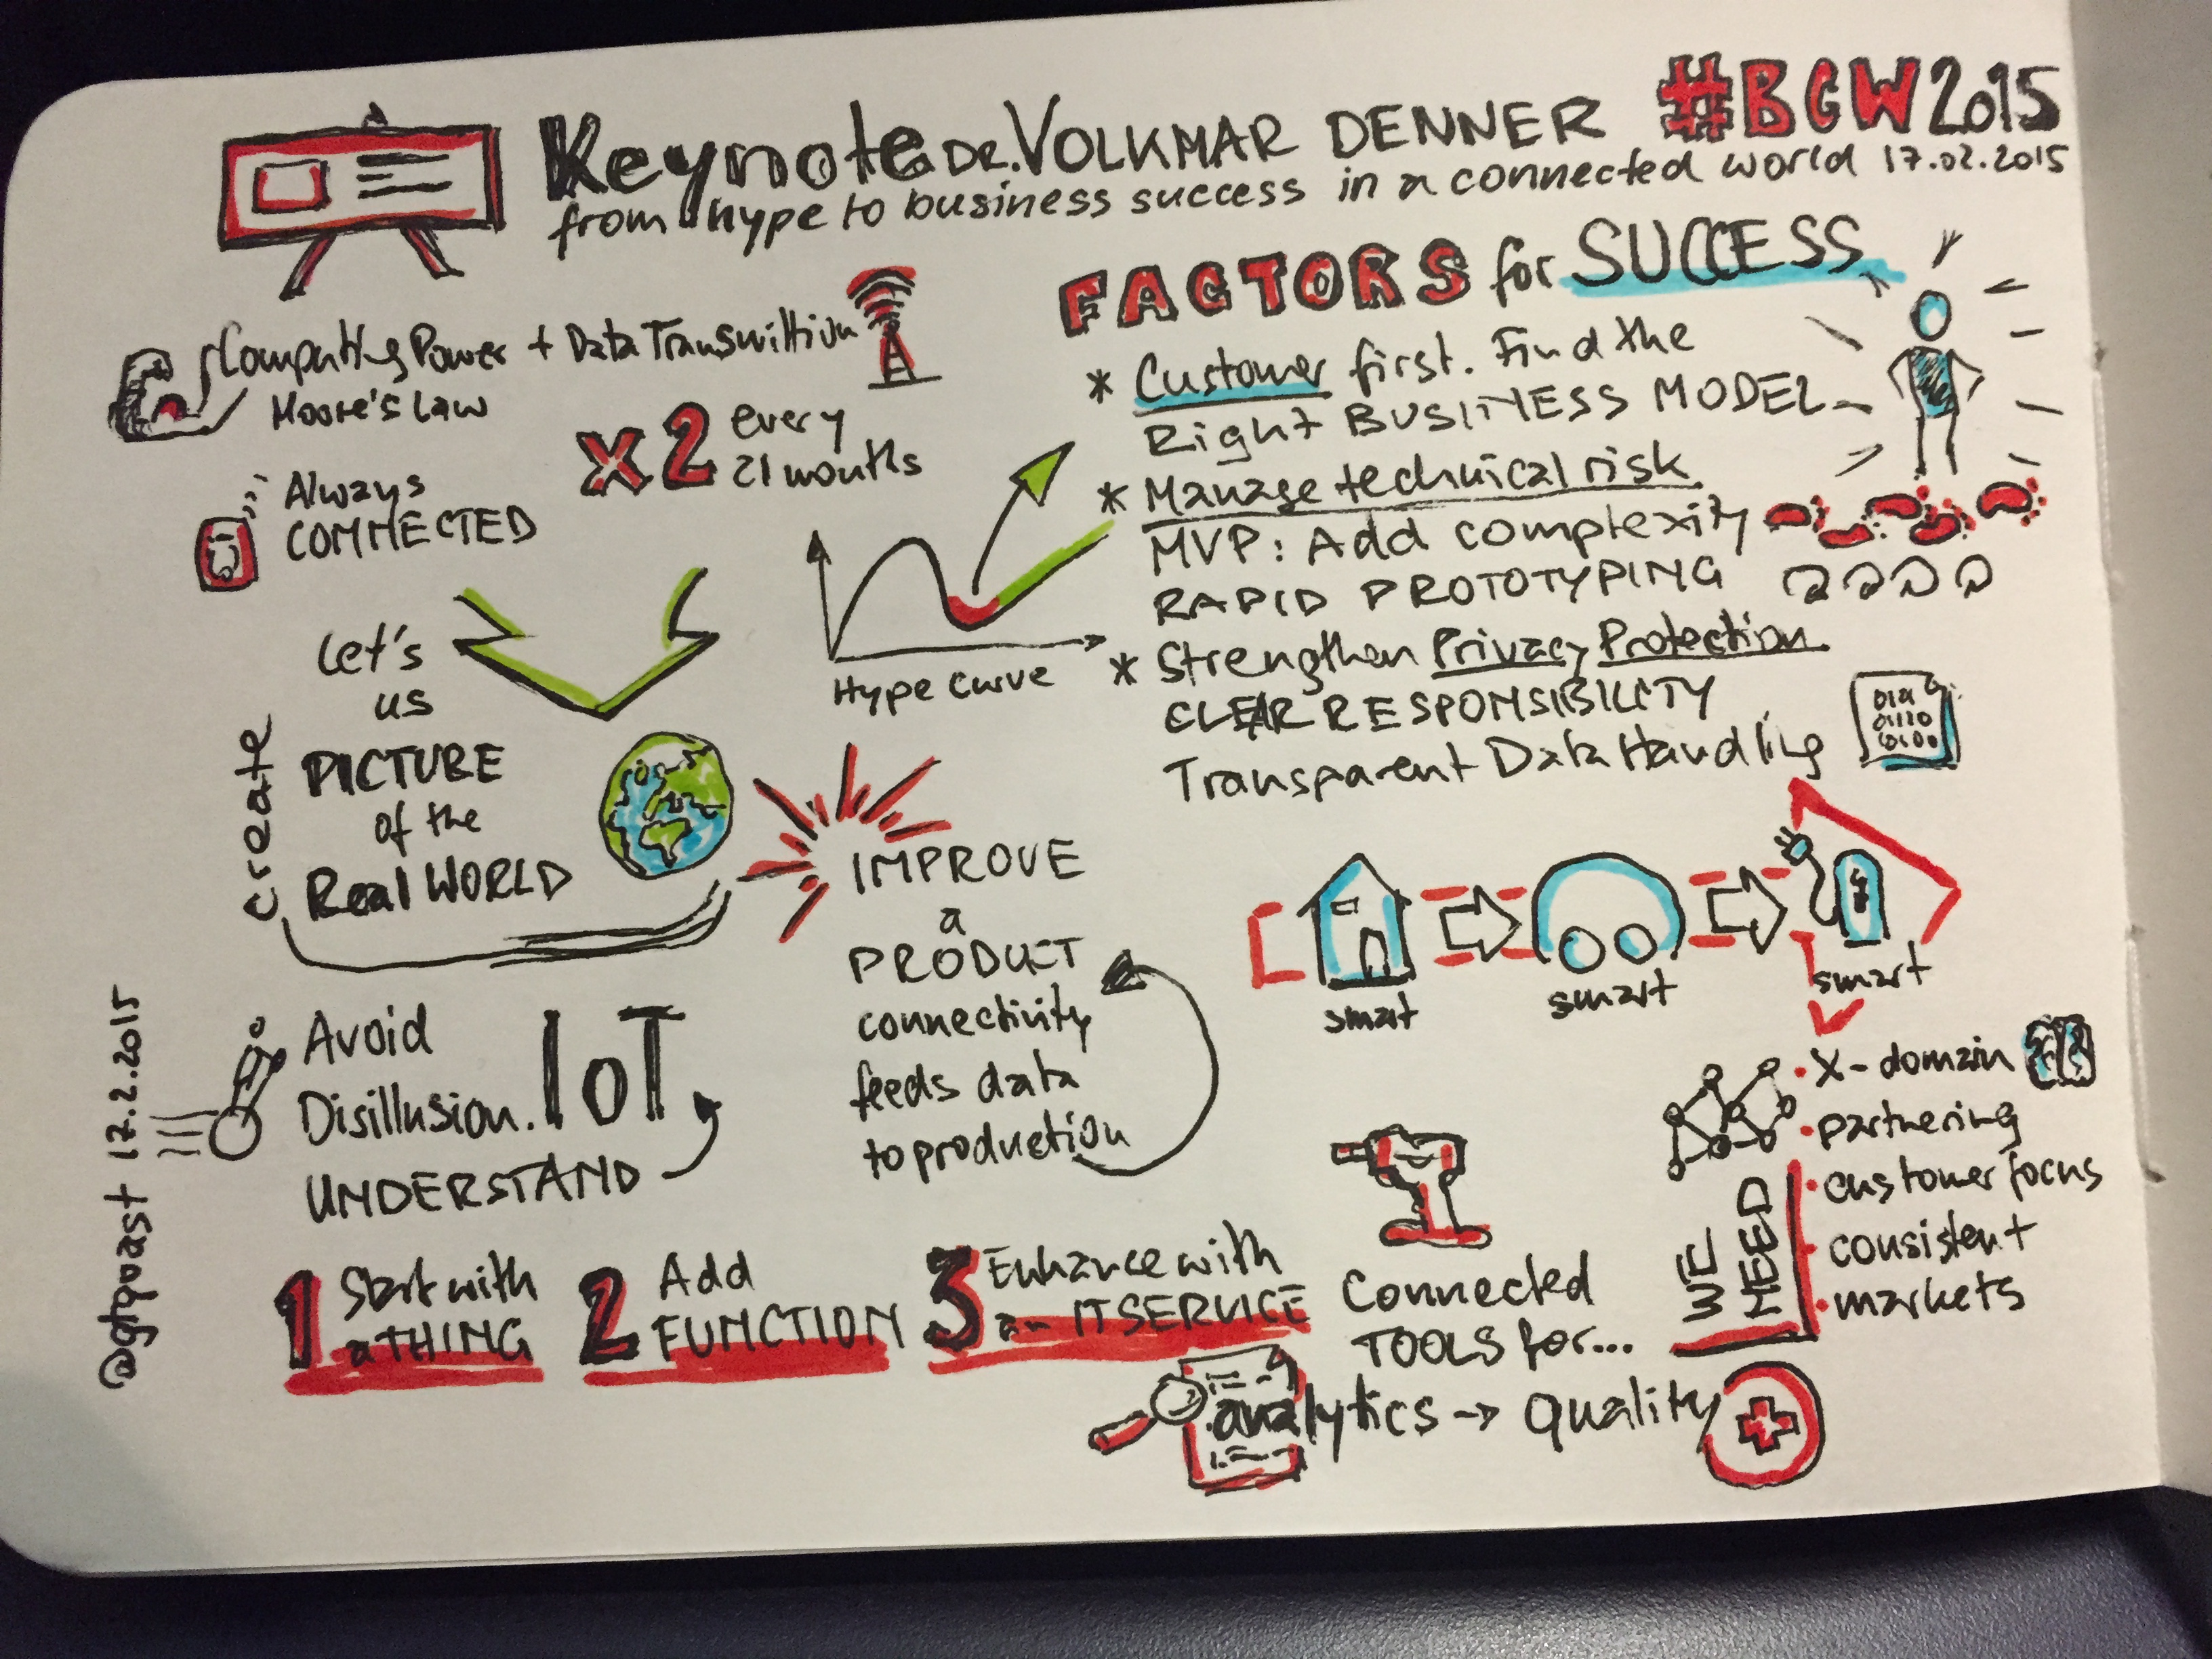 Keynote DR. VOLKMAR DENNER #BCW2015
from hype to business success in a connected world 17.02.2015
Computing Power + Data Transmittion
Moore's Law
x2 every
21 months
Always
CONNECTED
Let's
us
create
PICTURE
of the
Real WORLD
Hype curve
FACTORS for SUCCESS
* Customer first. Find the
Right BUSINESS MODEL
* Manage technical risk
MVP: Add complexity
RAPID PROTOTYPING
* Strengthen Privacy Protection
CLEAR RESPONSIBILITY
Transparent Data Handling
011
01110
10100
IMPROVE
a
PRODUCT
connectivity
feeds data
to production
smart
smart
smart
Avoid
Disillusion. IoT
UNDERSTAND
1 Start with
a THING
2 Add
FUNCTION
3 Enhance with
an IT SERVICE
Connected
TOOLS for...
analytics → Quality
WE
NEED
• X-domain
• partnering
• customer focus
• consistent
• markets
17.2.2015